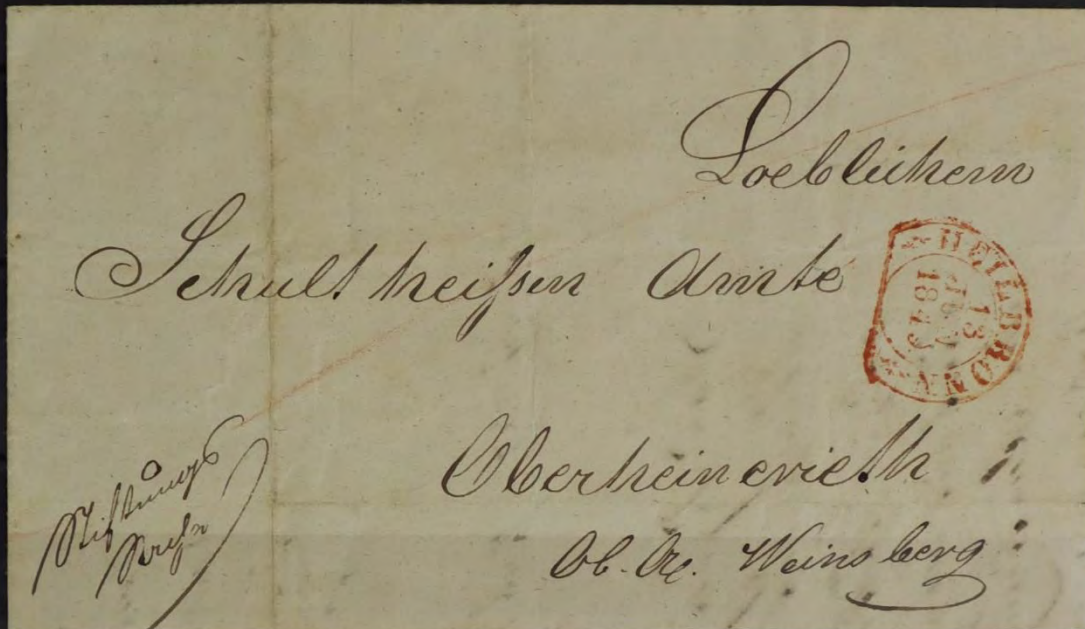 Loeblichem
Schultheißen Amte
HEILBRONN
13
1845
Oberheinerieth
Ob. A. Weinsberg
Stiftungs